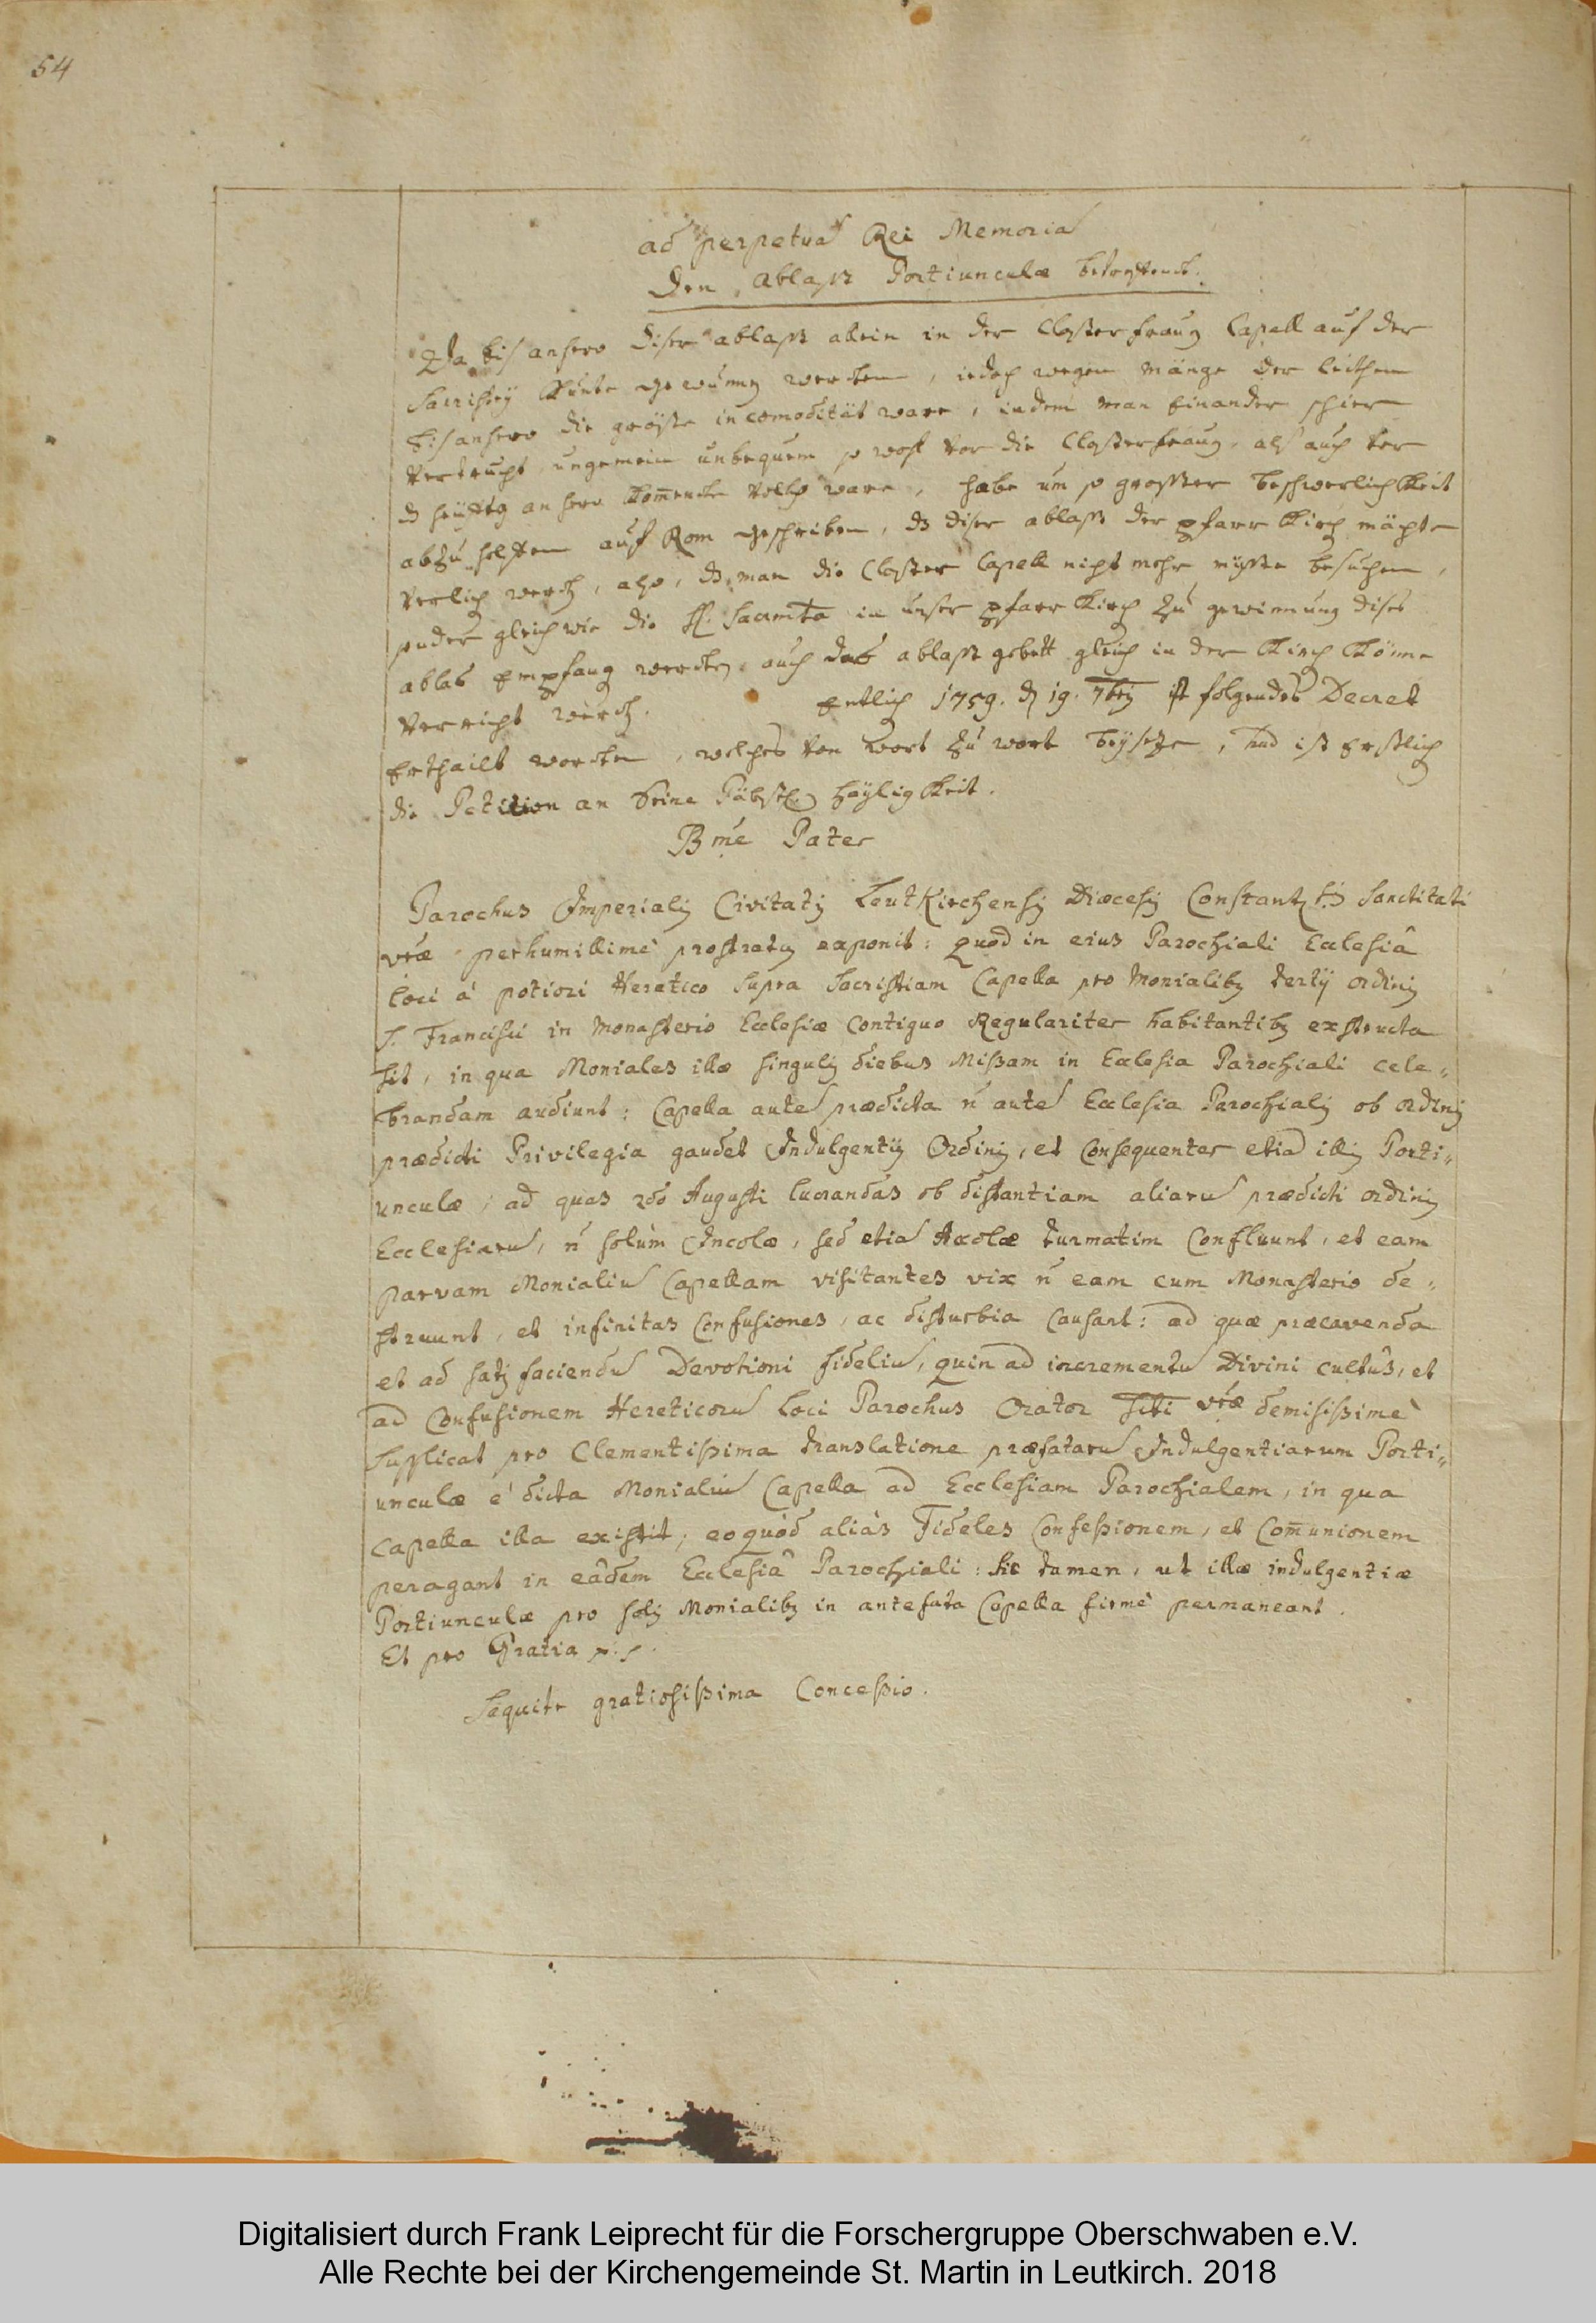 54
ad perpetuã Rei Memoriã
Den Ablaß Portiunculæ betreffendt.
Da bis anhero diser ablaß allein in der Closterfraug Capell auf der
Sacristey kunte gewunng werden, iedoch wegen mänge der leithen
bisanhero die größte incomoditüt ware, indem man Einander schier
vertruckt, ungemein unbequem so wohl vor die Closterfraug, als auch vor
anhero kom̄ende volkh ware, habe um so grosser beschwerlichkeit
abzuhelffen auf Rom geschriben, dz diser ablaß der pfarr Kirch möchte
verlich werd, also, dz man die Closter Capell nicht mehr müßte besuchen,
sonder gleich wie die H. Sacramta in unser pfarr Kirch zu gewinnung dises
ablas Empfang werden, auch das ablaß gebett gleich in der Kirch könne
verricht werd. Entlich 1759. d 19. 7bris ist folgendes Decret
Erthailt worden, welches von wort zu wort beysetze, und ist Erstlich
die Petition an Seine Päbstl. Heyligkeit.
Bmè Pater
Parochus Imperialis Civitatis Leutkirchensis Diœcesis Constantiensis Sanctitati
vræ perhumillimè prostratus exponit: quod in eius Parochiali Ecclesiâ
loci à potiori Heretico supra Sacristiam Capella pro Monialibus tertij ordinis
S. Francisci in Monasterio Ecclesiæ contiguo Regulariter habitantibus exstructa
sit, in qua Moniales illæ singulis diebus Missam in Ecclesia Parochiali cele„
brandam audiunt: Capella autẽ prædicta ñ autẽ Ecclesia Parochialis ob ordinis
prædicti Privilegia gaudet Indulgentijs Ordinis, et consequenter etiã illis Porti„
unculæ, ad quas 2dô Augusti lucrandas ob distantiam aliarũ prædicti ordinis
Ecclesiarũ, ñ solùm Incolæ, sed etiã Accolæ turmatim confluunt, et eam
parvam Monialiũ Capellam visitantes vix ñ eam cum Monasterio de„
struunt, et infinitas confusiones, ac disturbia causant: ad quæ præcavenda
et ad satisfaciendũ Devotioni fideliũ, quin ad incrementũ Divini cultûs, et
ad confusionem Hereticorũ loci Parochus Orator Stti vræ demisissimè
supplicat pro Clementissima translatione præfatarũ Indulgentiarum Porti„
unculæ è dicta Monialiũ Capella ad Ecclesiam Parochialem, in qua
capella illa existit, eo quòd aliàs Fideles Confessionem, et Com̄unionem
peragant in eâdem Ecclesiâ Parochiali: sic tamen, ut illæ indulgentiæ
Portiunculæ pro solis Monialibus in antefata Capella firmè permaneant.
Et pro Gratia p.s.
Sequitr gratiosissima Concessio.
Digitalisiert durch Frank Leiprecht für die Forschergruppe Oberschwaben e.V.
Alle Rechte bei der Kirchengemeinde St. Martin in Leutkirch. 2018